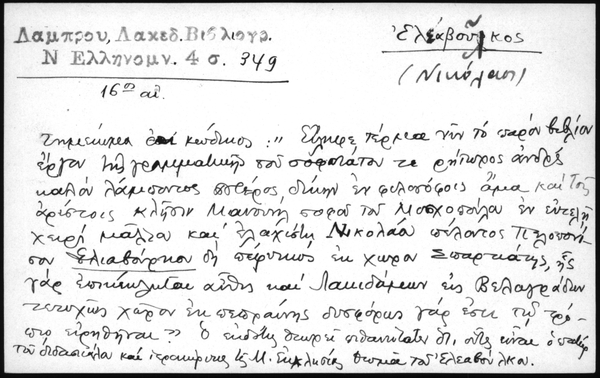 Λαμπρου, Λακεδ. Βιβλιογρ.
Ν Ελληνομν. 4 σ. 349
Ἐλεαβοῦλκος
(Νικόλαος)
16ου αἰ.
Σημείωμα κώδικος: " Εἴληφε τέρμα νῦν τὸ παρὸν βιβλίον
ἔργον τῆς γραμματικῆς τοῦ σοφωτάτου τε ῥήτορος ἀνδρός
καλὸν λάμποντος ἀστέρος δίκην ἐν φιλοσόφοις ἅμα καὶ τοῖς
ἀρίστοις κλῆσιν Μανουὴλ σοφοῦ τοῦ Μοσχοπούλου ἐν εὐτελῆ
χειρὶ μάλα καὶ ἐλαχίστῃ Νικολάου Πελοποννή
σου Ἐλιαβούρκου δὴ πέφυκως ἐκ χώρας Σπαρτιάτης, ἧς
γὰρ καὶ Λακεδαίμων εἰς Βελαγράδων
γάρ ἐστι τῷ τρό-
πῳ εἰρῆσθαι" Ὁ ἐκδότης θεωρεῖ πιθανώτατον ὅτι οὗτος εἶναι ὁ πατὴρ
τοῦ διδασκάλου καὶ ἱεροκήρυκος τῆς Μ. Ἐκκλησίας Θωμᾶ τοῦ Ἐλεαβούλκου.